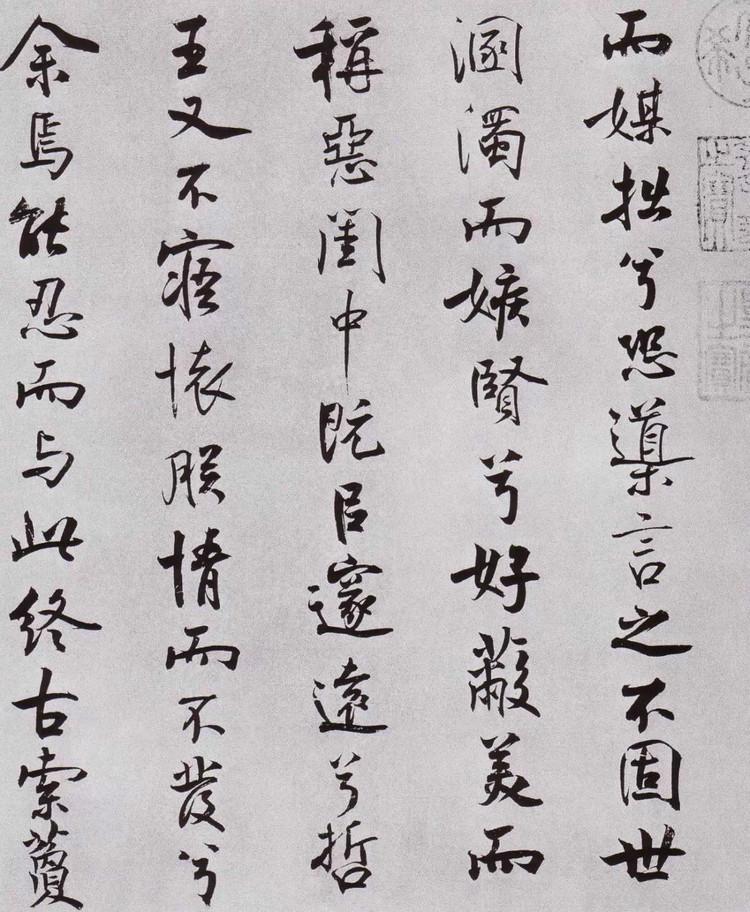 而媒拙兮恐導言之不固世
溷濁而嫉賢兮好蔽美而
稱惡閨中既㠯邃遠兮哲
王又不寤懐朕情而不發兮
余焉能忍而与此終古索藑